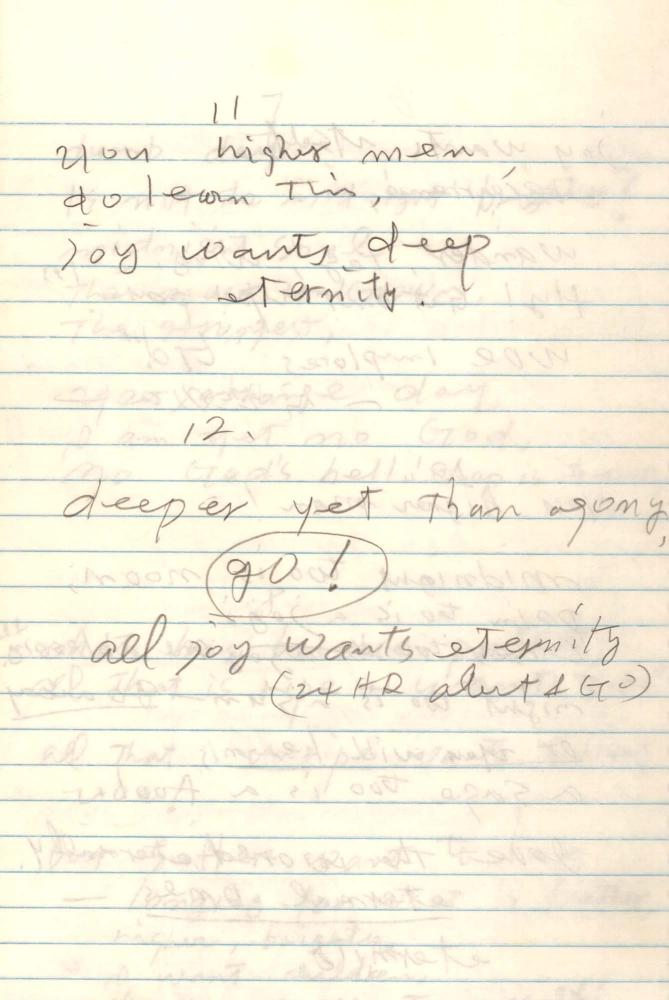 11
you higher men,
do learn this,
joy wants deep
eternity.
12.
deeper yet than agony,
go!
all joy wants eternity
(24 HR alert & GO)